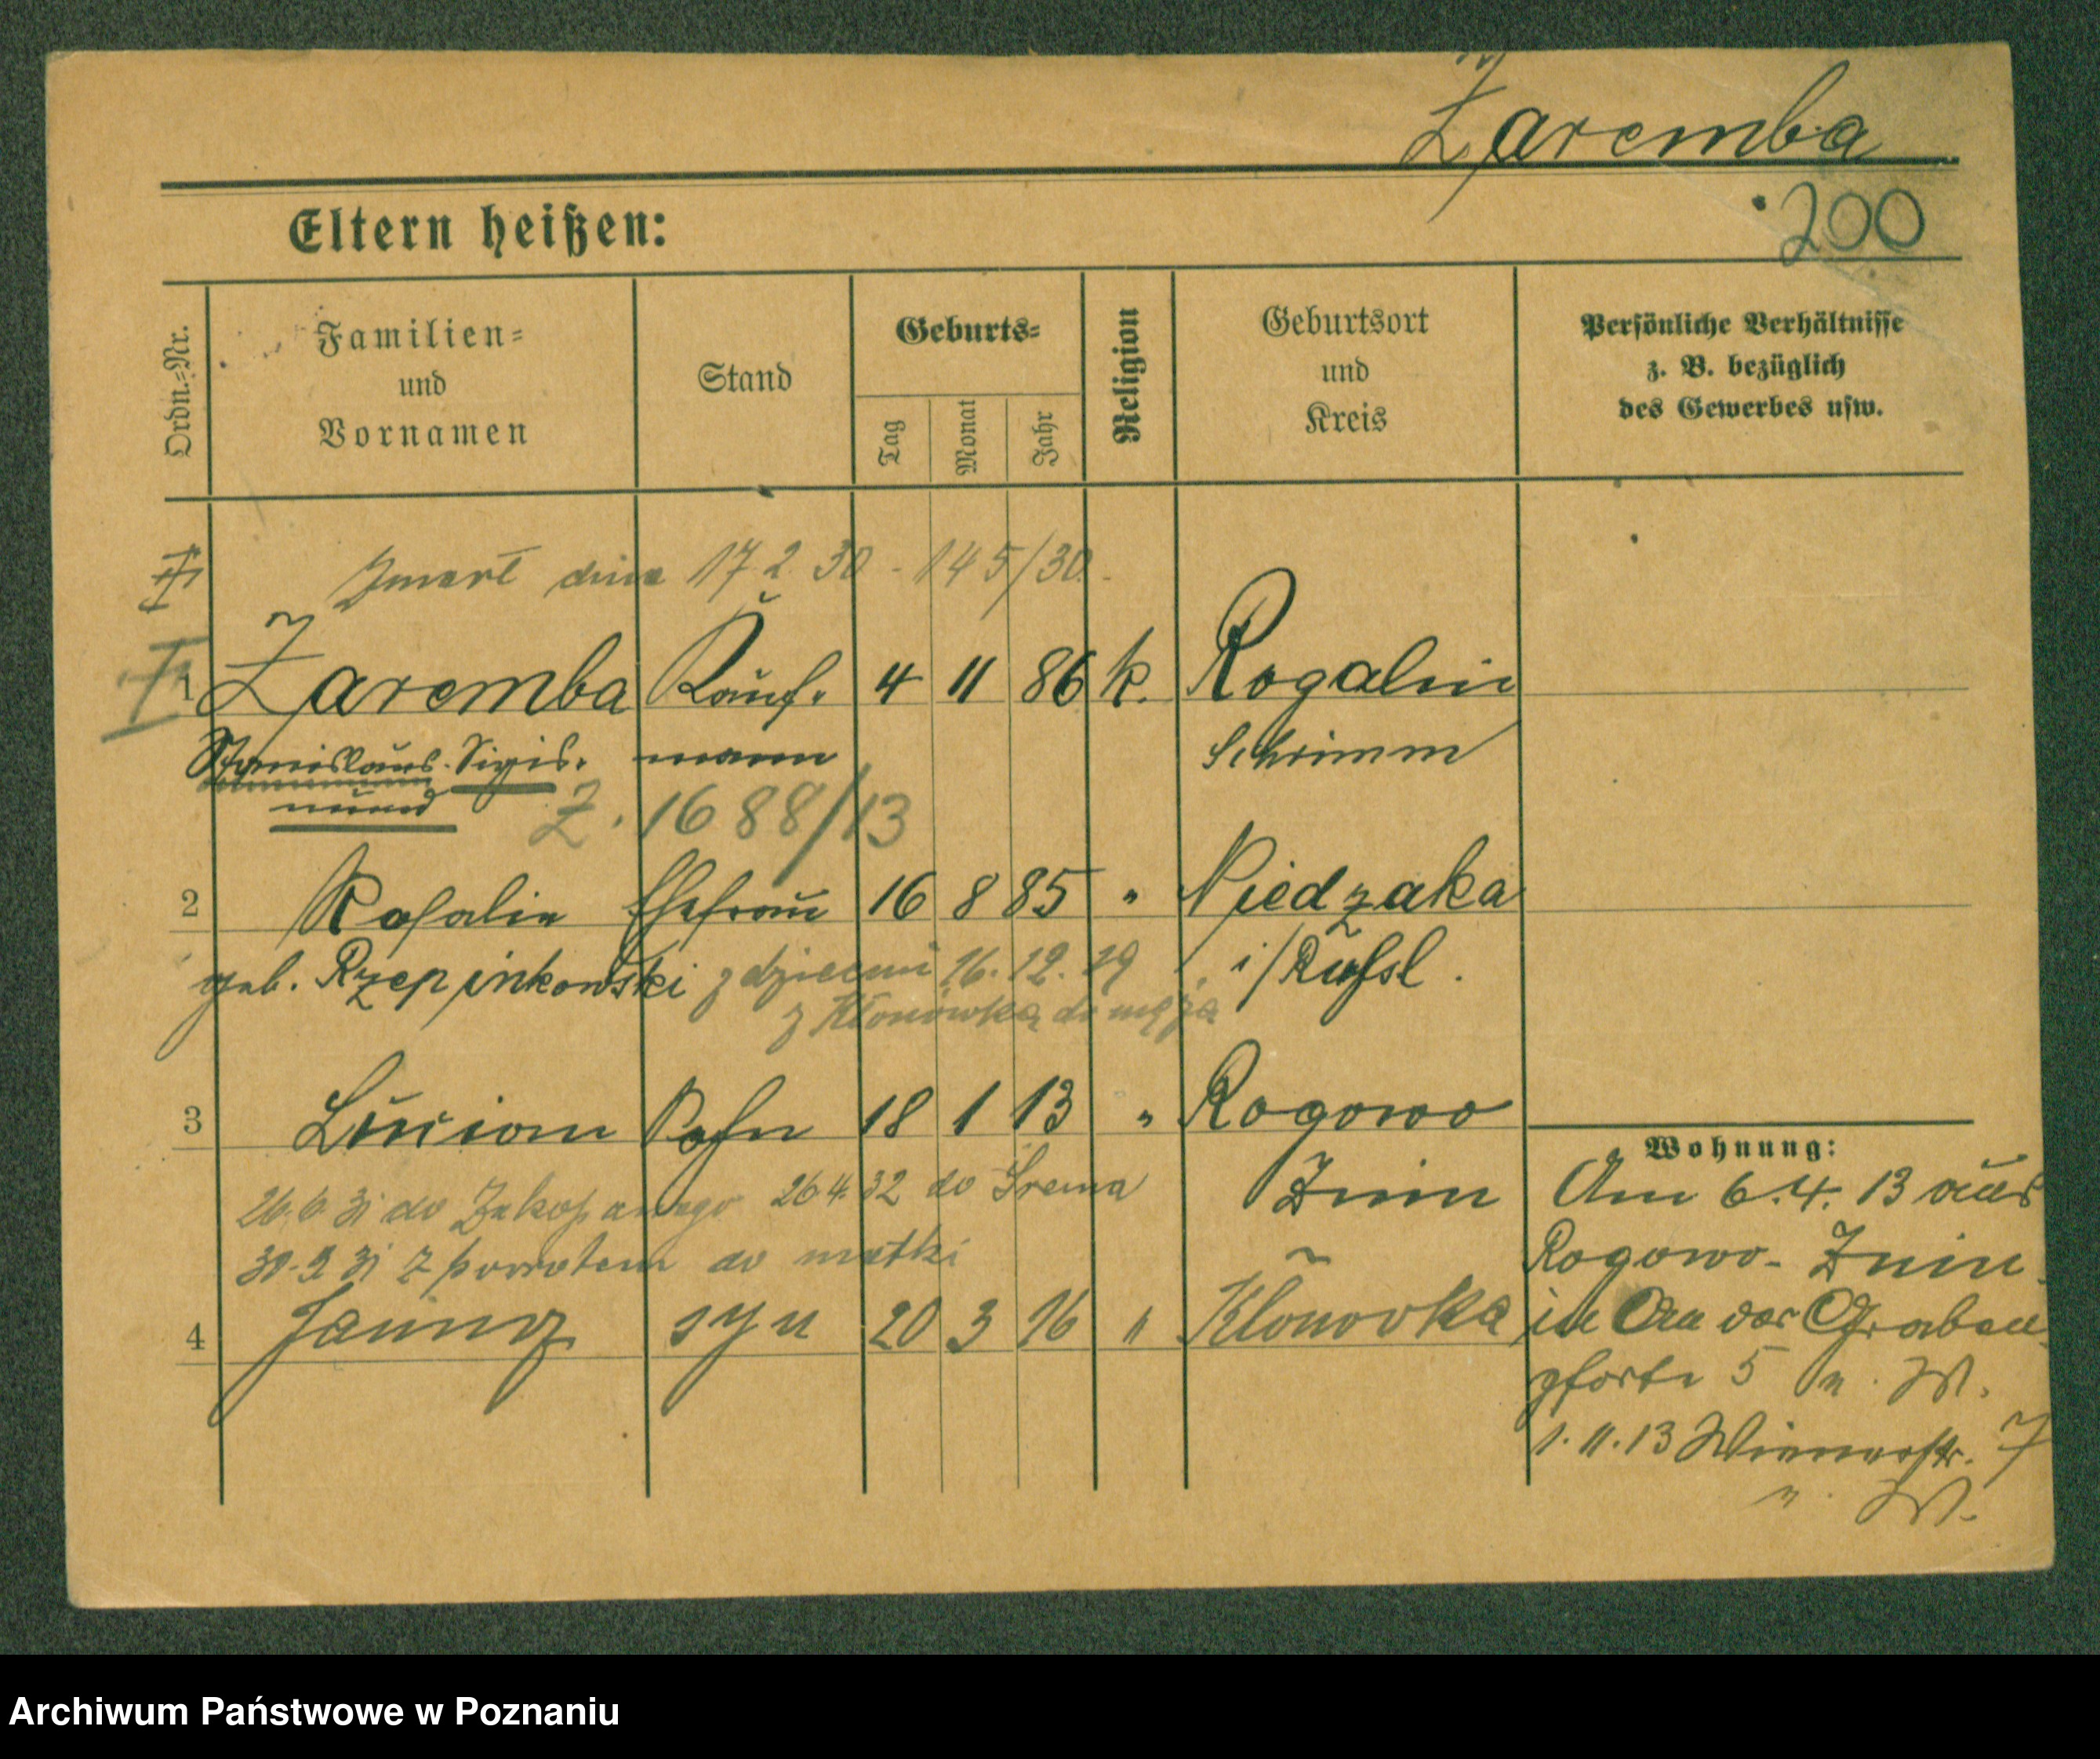 Zaremba
200
Eltern heißen:
Ordn.=Nr.
Familien=
und
Vornamen
Stand
Geburts=
Tag
Monat
Jahr
Religion
Geburtsort
und
Kreis
Persönliche Verhältnisse
z. B. bezüglich
des Gewerbes usw.
Zmarł dnia 17 2 30 - 145/30.
1 Zaremba Kauf- 4 11 86 k. Rogalin
Stanislaus Sigis- mann Schrimm
mund
Z. 1688/13
2 Rosalie Ehefrau 16 8 85 " Niedzaka
geb. Rzepinkowski z dziećmi 16. 12. 19 i/Rußl.
z Kłonówka do męża
3 Lucian Sohn 18 1 13 " Rogowo
Znin
26.6 31 do Zakopanego 26 4. 32 do Śrema
30. 9 31 z powrotem do matki
4 Janusz syn 20 3 16 " Klonovka
Wohnung:
Am 6. 4. 13 aus
Rogowo - Znin
in An der Graben
pforte 5 n. W.
1. 11. 13 Wienerstr. 7
n. W.
Archiwum Państwowe w Poznaniu